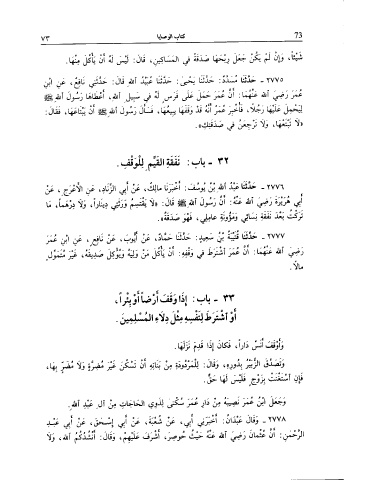 73 كتاب الوصايا ٧٣
شَيْئاً، وَإِنْ لَمْ يَكُنْ جَعَلَ رِبْحَهَا صَدَقَةً فِي المَسَاكِينِ، قَالَ: لَيْسَ لَهُ أَنْ يَأْكُلَ مِنْهَا.
٢٧٧٥ - حَدَّثَنَا مُسَدَّدٌ: حَدَّثَنَا يَحْيَى: حَدَّثَنَا عُبَيْدُ اللهِ قَالَ: حَدَّثَنِي نَافِعٌ، عَنِ ابْنِ
عُمَرَ رَضِيَ اللهُ عَنْهُمَا: أَنَّ عُمَرَ حَمَلَ عَلَى فَرَسٍ لَهُ فِي سَبِيلِ اللهِ، أَعْطَاهَا رَسُولَ اللهِ ﷺ
لِيَحْمِلَ عَلَيْهَا رَجُلاً، فَأُخْبِرَ عُمَرُ أَنَّهُ قَدْ وَقَفَهَا يَبِيعُهَا، فَسَأَلَ رَسُولَ اللهِ ﷺ أَنْ يَبْتَاعَهَا، فَقَالَ:
«لَا تَبْتَعْهَا، وَلَا تَرْجِعَنَّ فِي صَدَقَتِكَ».
٣٢ - باب: نَفَقَةِ القَيِّمِ لِلْوَقْفِ.
٢٧٧٦ - حَدَّثَنَا عَبْدُ اللهِ بْنُ يُوسُفَ: أَخْبَرَنَا مَالِكٌ، عَنْ أَبِي الزِّنَادِ، عَنِ الأَعْرَجِ، عَنْ
أَبِي هُرَيْرَةَ رَضِيَ اللهُ عَنْهُ: أَنَّ رَسُولَ اللهِ ﷺ قَالَ: «لَا يَقْتَسِمُ وَرَثَتِي دِينَاراً، وَلَا دِرْهَماً، مَا
تَرَكْتُ بَعْدَ نَفَقَةِ نِسَائِي وَمَؤُونَةِ عَامِلِي، فَهُوَ صَدَقَةٌ».
٢٧٧٧ - حَدَّثَنَا قُتَيْبَةُ بْنُ سَعِيدٍ: حَدَّثَنَا حَمَّادٌ، عَنْ أَيُّوبَ، عَنْ نَافِعٍ، عَنِ ابْنِ عُمَرَ
رَضِيَ اللهُ عَنْهُمَا: أَنَّ عُمَرَ اشْتَرَطَ فِي وَقْفِهِ: أَنْ يَأْكُلَ مَنْ وَلِيَهُ وَيُؤْكِلَ صَدِيقَهُ، غَيْرَ مُتَمَوِّلٍ
مالاً.
٣٣ - باب: إِذَا وَقَفَ أَرْضاً أَوْ بِئْراً،
أَوِ اشْتَرَطَ لِنَفْسِهِ مِثْلَ دِلَاءِ المُسْلِمِينَ.
وَأَوْقَفَ أَنَسٌ دَاراً، فَكَانَ إِذَا قَدِمَ نَزَلَهَا.
وَتَصَدَّقَ الزُّبَيْرُ بِدُورِهِ، وَقَالَ: لِلْمَرْدُودَةِ مِنْ بَنَاتِهِ أَنْ تَسْكُنَ غَيْرَ مُضِرَّةٍ وَلَا مُضَرٍّ بِهَا،
فَإِنِ اسْتَغْنَتْ بِزَوْجٍ فَلَيْسَ لَهَا حَقٌّ.
وَجَعَلَ ابْنُ عُمَرَ نَصِيبَهُ مِنْ دَارِ عُمَرَ سُكْنَى لِذَوِي الحَاجَاتِ مِنْ آلِ عَبْدِ اللهِ.
٢٧٧٨ - وَقَالَ عَبْدَانُ: أَخْبَرَنِي أَبِي، عَنْ شُعْبَةَ، عَنْ أَبِي إِسْحَقَ، عَنْ أَبِي عَبْدِ
الرَّحْمٰنِ: أَنَّ عُثْمَانَ رَضِيَ اللهُ عَنْهُ حَيْثُ حُوصِرَ، أَشْرَفَ عَلَيْهِمْ، وَقَالَ: أَنْشُدُكُمُ اللهَ، وَلَا